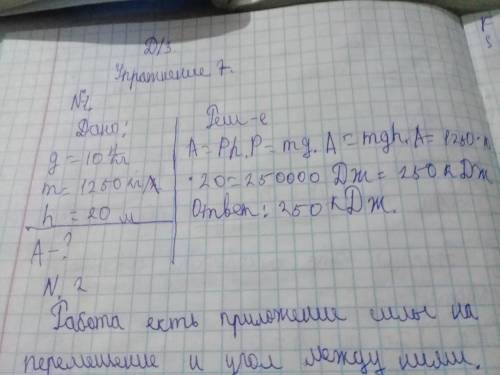 Д/з.
Упражнение 7.
№1
Дано:
g = 10 Н/кг
m = 1250 кг
h = 20 м
A - ?
Реш-е
A = Ph. P = mg. A = mgh. A = 1250 ·
· 20 = 250000 Дж = 250 кДж
Ответ: 250 кДж.
N 2
Работа есть приложение силы на
перемещение и угол между ними.